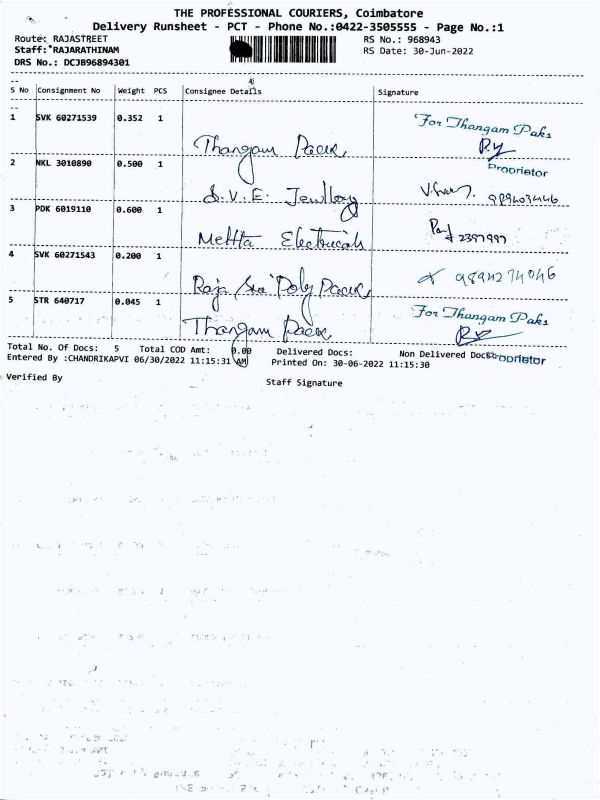 THE PROFESSIONAL COURIERS, Coimbatore
Delivery Runsheet - PCT - Phone No.:0422-3505555 - Page No.:1
Route: RAJASTREET RS No.: 968943
Staff: RAJARATHINAM RS Date: 30-Jun-2022
DRS No.: DCJB96894301
S No Consignment No Weight PCS Consignee Details Signature
1 SVK 60271539 0.352 1 Thangam Pack For Thangam Paks
Proprietor
2 NKL 3010890 0.500 1 S.V.E. Jewllery
3 PDK 6019110 0.600 1 Mehta Electricals 2397997
4 SVK 60271543 0.200 1 Raja Sri Poly Pack 9894274046
5 STR 640717 0.045 1 Thangam Pack For Thangam Paks
Total No. Of Docs: 5 Total COD Amt: 0.00 Delivered Docs: Non Delivered Docs: Proprietor
Entered By :CHANDRIKAPVI 06/30/2022 11:15:31 AM Printed On: 30-06-2022 11:15:30
Verified By Staff Signature